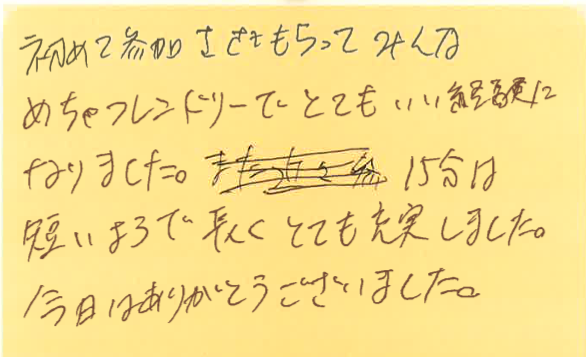 初めて参加させてもらってみんな
めちゃフレンドリーでとてもいい経験に
なりました。 15分は
短いようで長くとても充実しました。
今日はありがとうございました。